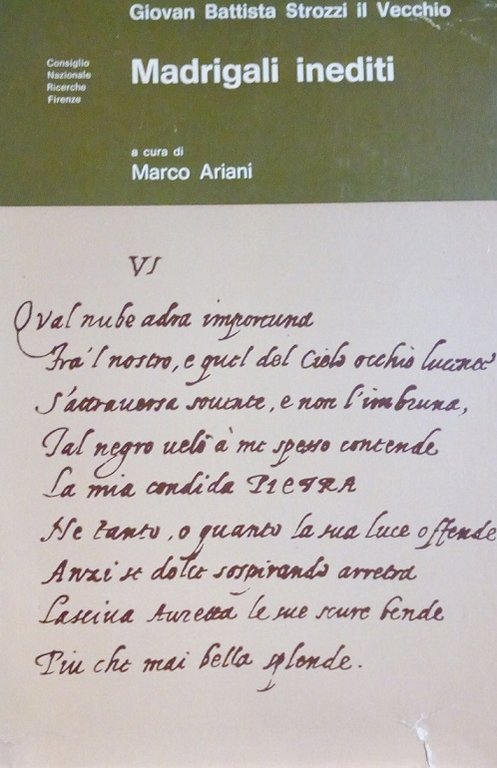 Giovan Battista Strozzi il Vecchio
Consiglio
Nazionale
Ricerche
Firenze
Madrigali inediti
a cura di
Marco Ariani
VI
Qval nube adra importuna
Fra'l nostro, e quel del Cielo occhio lucente
S'attrauersa souente, e non l'imbruna,
Tal negro uelo à me spesso contende
La mia condida PIETRA
Ne tanto, o quanto la sua luce offende
Anzi se dolce sospirando arretra
Lasciua Auretta le sue scure bende
Piu che mai bella splende.